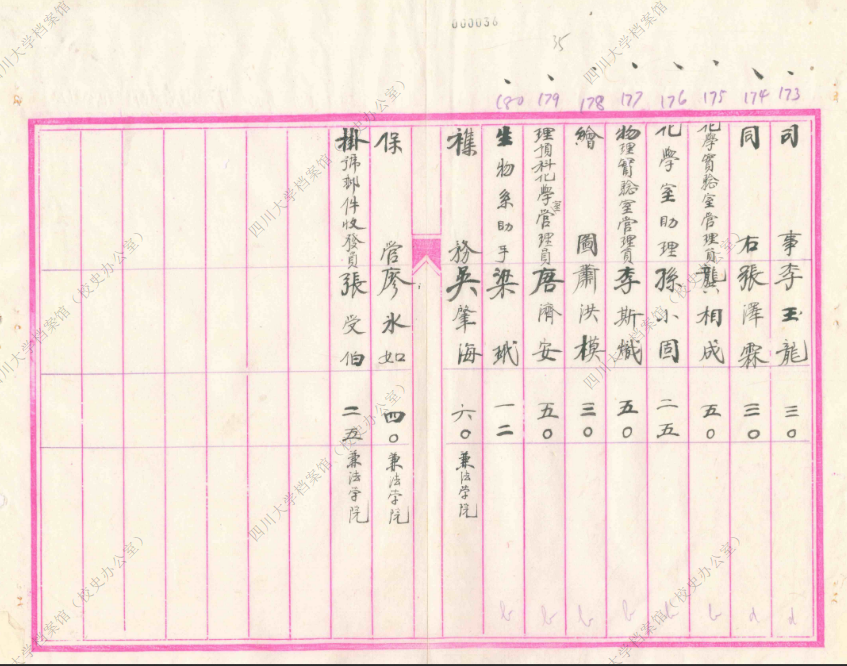 000036
35
173 司事 李玉龍 三〇
174 同右 張澤霖 三〇
175 化學實驗室管理員 龔相成 五〇
176 化學室助理 孫小固 二五
177 物理實驗室管理員 李斯熾 五〇
178 繪圖 蕭洪模 三〇
179 理預科化學室管理員 唐濟安 五〇
180 生物系助手 梁玳 一二
襍務 吳肇海 六〇 兼法学院
保管 廖氷如 四〇 兼法学院
掛號郵件收發員 張受伯 二五 兼法学院
四川大学档案馆（校史办公室）